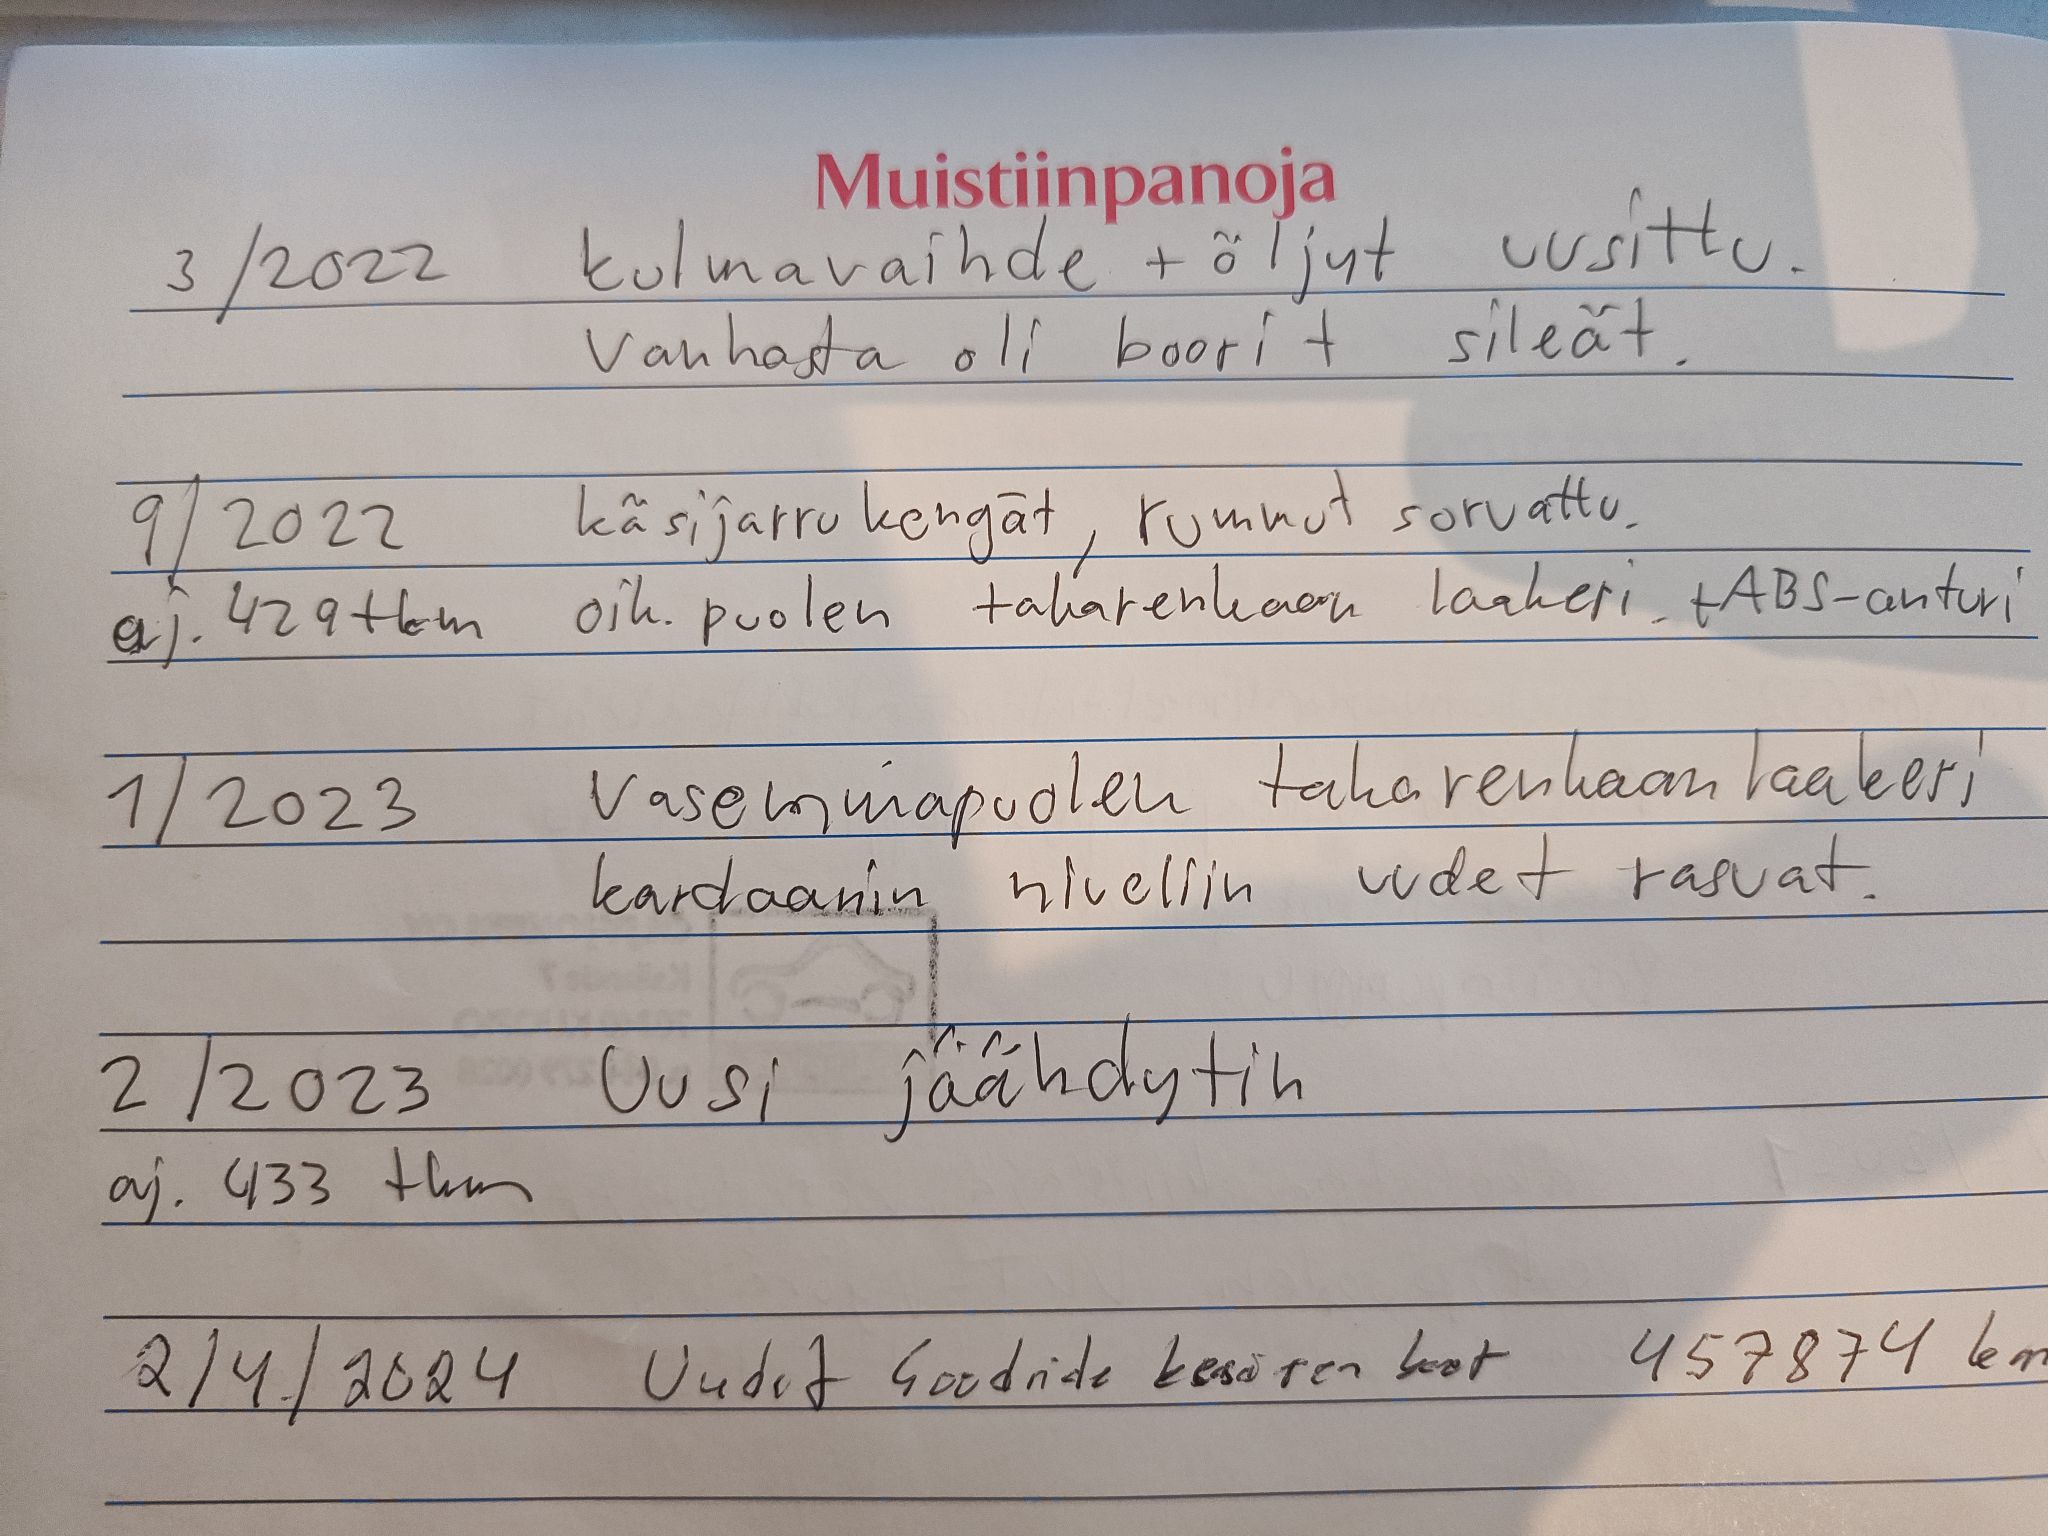 Muistiinpanoja
3/2022 kulmavaihde + öljyt uusittu.
Vanhasta oli boorit sileät.
9/2022 käsijarrukengät, rummut sorvattu.
aj. 429tkm oik. puolen takarenkaan laakeri. + ABS-anturi
1/2023 Vasemmapuolen takarenkaan laakeri
kardaanin niveliin uudet rasvat.
2/2023 Uusi jäähdytin
aj. 433 tkm
2/4/2024 Uudet Goodride kesärenkaat 457874 km